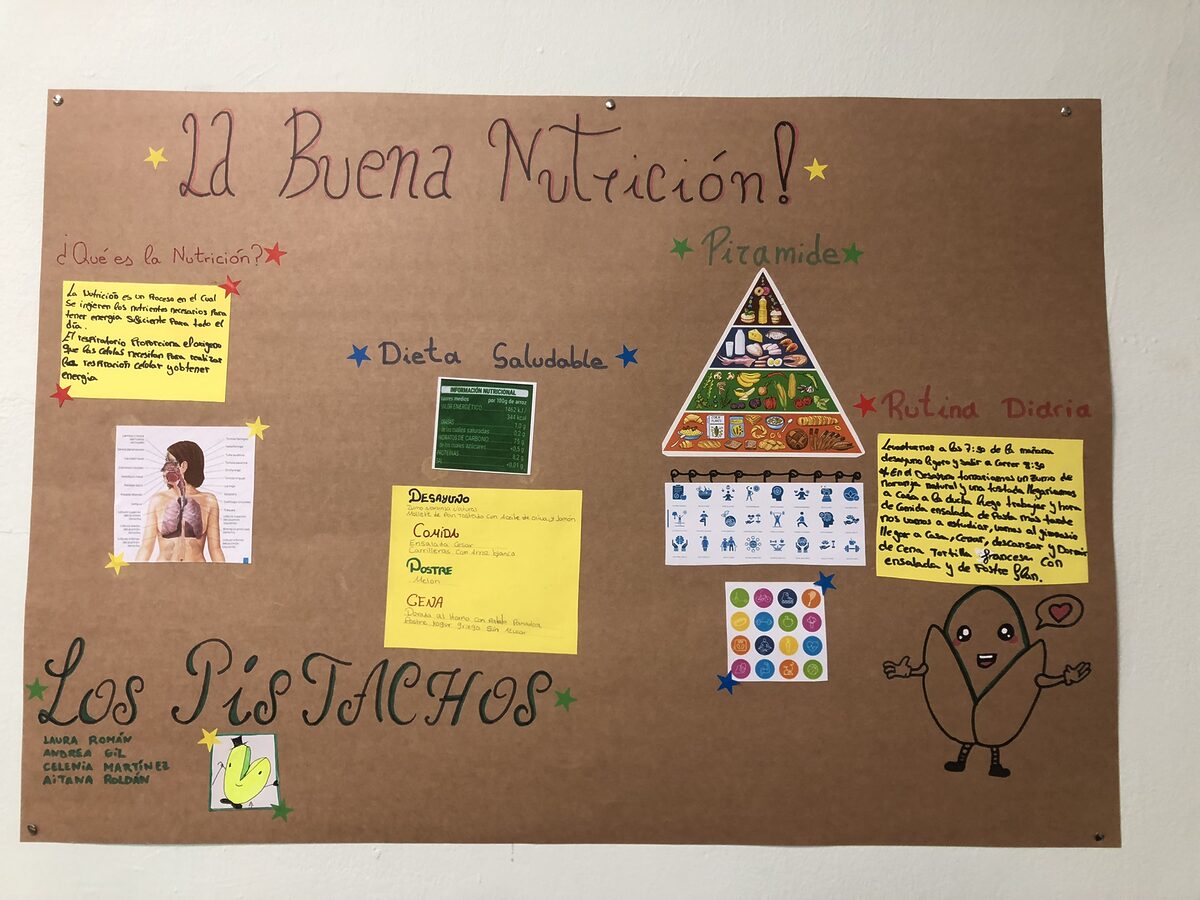 La Buena Nutrición!
¿Qué es la Nutrición?
La Nutrición es un Proceso en el Cual
Se ingieren los nutrientes necesarios Para
tener energía Suficiente Para todo el
día.
El respiratorio Proporciona el oxigeno
que las celulas necesitan Para realizar
la respiración celular y obtener
energía
Dieta Saludable
INFORMACIÓN NUTRICIONAL
valores medios por 100g de arroz
VALOR ENERGÉTICO 1462 kJ
344 kcal
GRASAS 1,0 g
de las cuales saturadas 0,2 g
HIDRATOS DE CARBONO 75 g
de los cuales azúcares <0,5 g
PROTEÍNAS 8,2 g
SAL <0,01 g
DESAYUNO
Zumo naranja natural
Mollete de Pan tostado con Aceite de oliva y Jamón
COMIDA
Ensalada Cesar
Carrilleras con Arroz blanco
POSTRE
Melon
CENA
Dorada al Horno con Patata Panadera
Postre yogur griego Sin Azucar
Piramide
Rutina Diaria
Levantarnos a las 7:30 de la mañana
desayuno ligero y salir a correr 8:30
En el Desayuno tomariamos un Zumo de
naranja natural y una tostada, llegariamos
a Casa a la ducha luego trabajar y hora
de Comida ensalada de Pasta más tarde
nos vamos a estudiar, vamos al gimnasio
llegar a Casa, Cenar, descansar y Dormir
de Cena Tortilla francesa con
ensalada y de Postre flan.
LOS PISTACHOS
LAURA ROMÁN
ANDREA GIL
CELENIA MARTÍNEZ
AITANA ROLDÁN